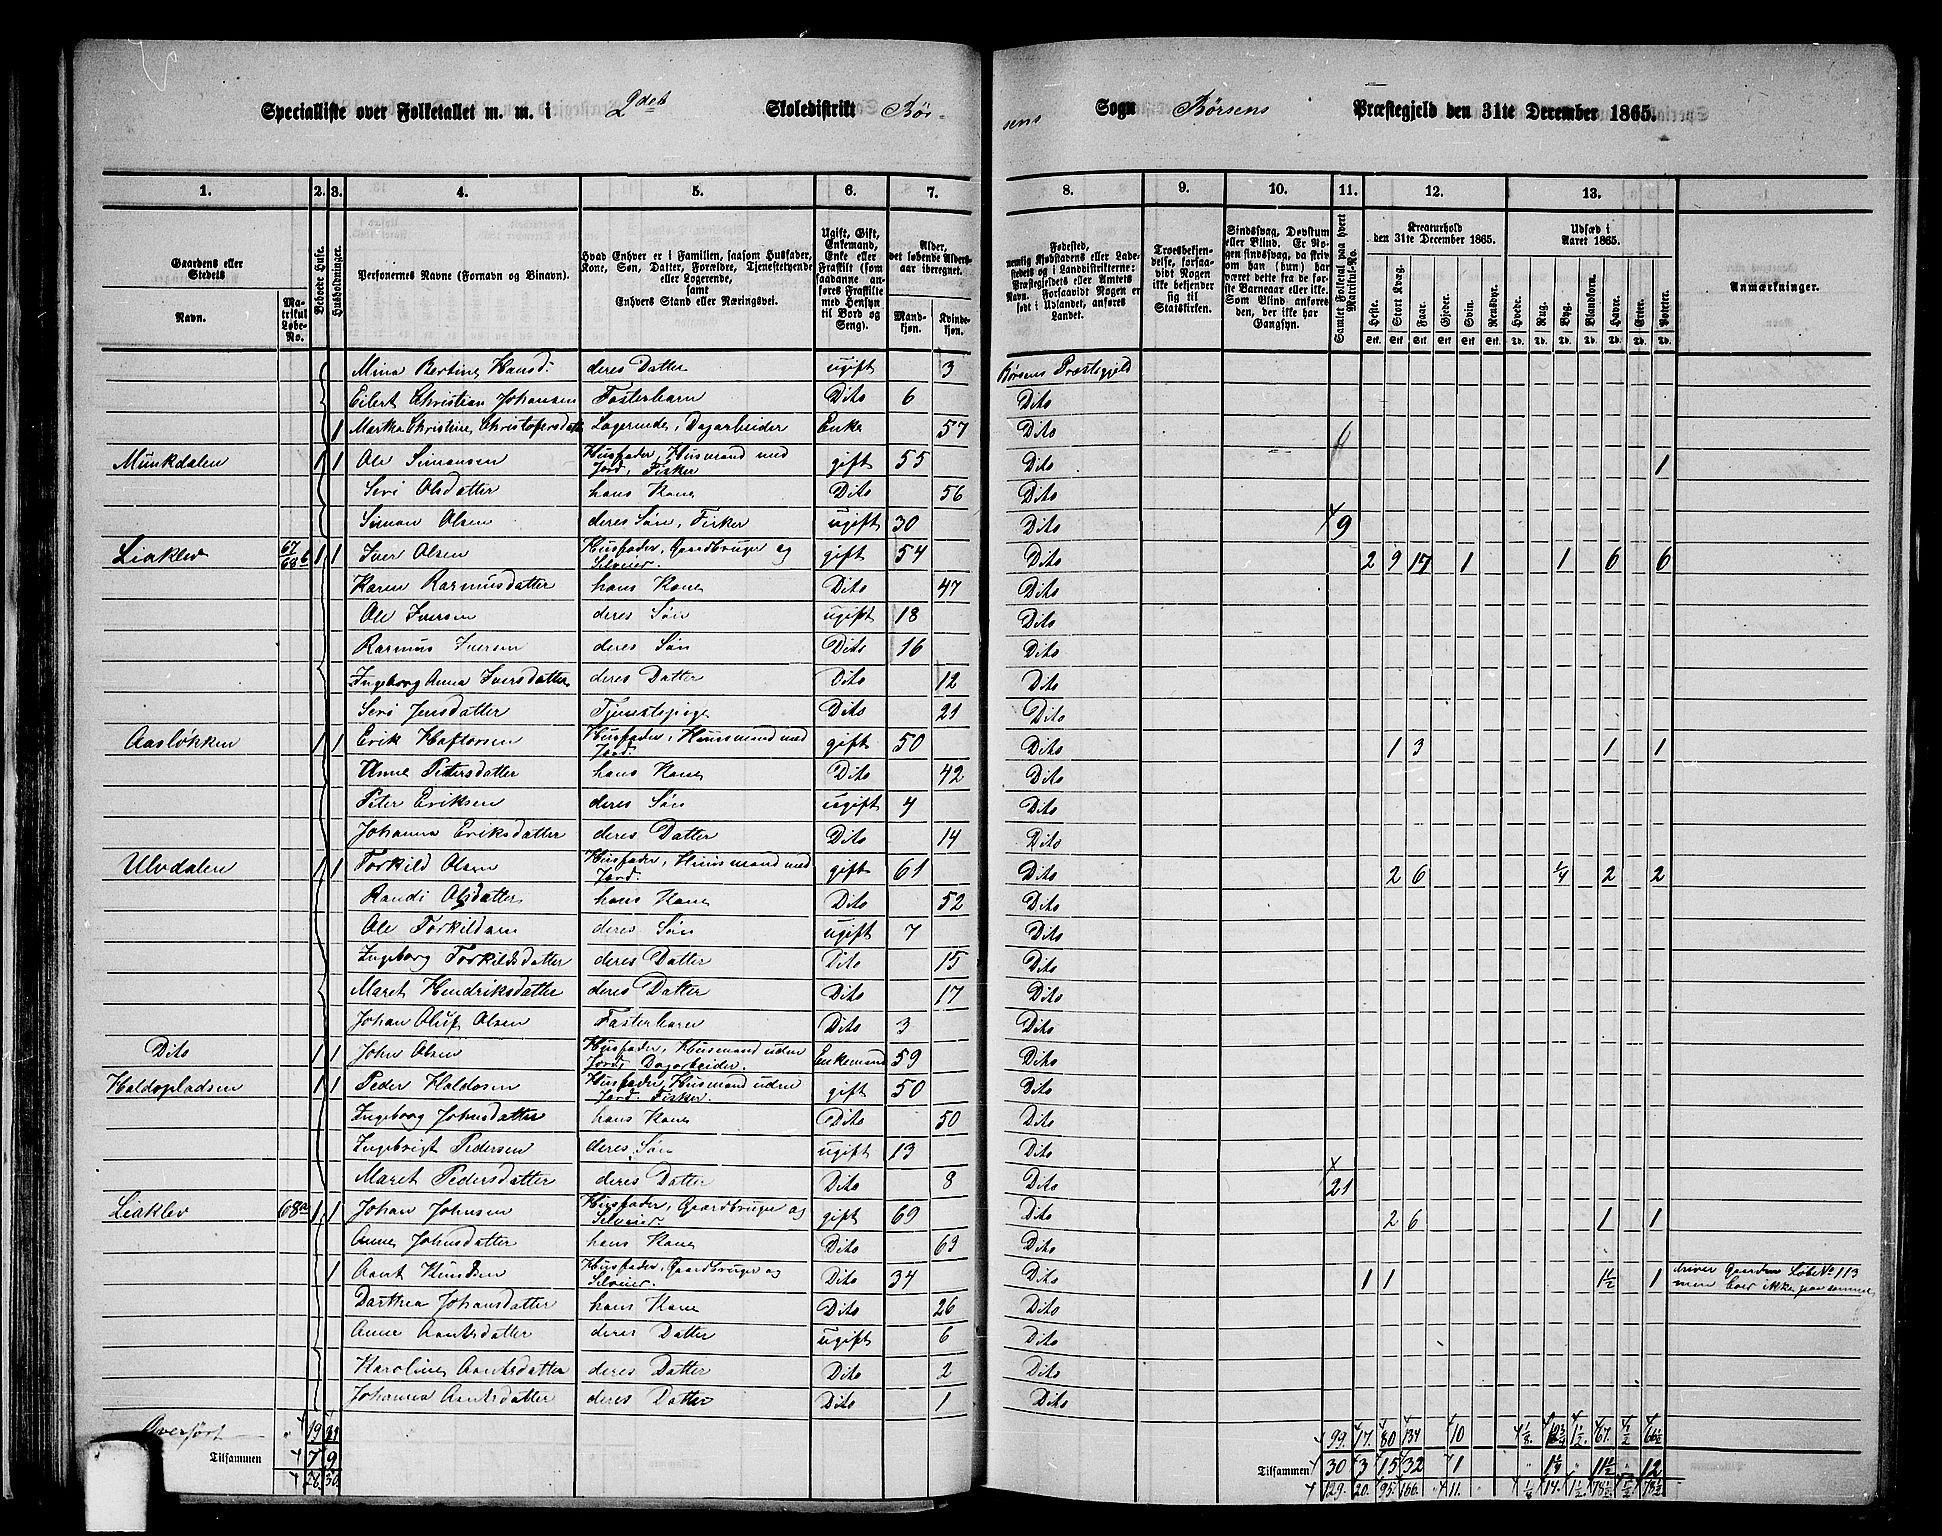 Specialliste over Folketallet m. m. i 2det Skoledistrikt Bør-
sens Sogn Børsens Præstegjeld den 31te December 1865.
1. 2. 3. 4. 5. 6. 7. 8. 9. 10. 11. 12. 13.
Gaardens eller Stedets Navn. Matrikul Løbe-No. Beboede Huse. Husholdninger. Personernes Navne (Fornavn og Binavn).
Hvad Enhver er i Familien, saasom Husfader, Kone, Søn, Datter, Forældre, Tjenestetyende eller Logerende, samt Enhvers Stand eller Næringsvei.
Ugift, Gift, Enkemand, Enke eller Fraskilt (som saadanne anføres Fraskilte med Hensyn til Bord og Seng).
Alder, det løbende Aldersaar iberegnet. Mandkjøn. Kvindekjøn.
Troesbekjendelse, forsaavidt Nogen ikke bekjender sig til Statskirken.
Samlet Folketal paa hvert Matrikul-No.
Kreaturhold den 31te December 1865. Heste. Stort Kvæg. Faar. Gjeder. Svin. Rensdyr.
Udsæd i Aaret 1865. Hvede. Rug. Byg. Blandkorn. Havre. Erter. Poteter.
Anmærkninger.
Mina Bertine Hansd. deres Datter ugift 3 Børsens Præstegjeld
Eilert Christian Johansen Fosterbarn Dito 6 Dito
Martha Christine Christofersdatter Logerende, Dagarbeider Enke 57 Dito 6
Munkdalen 1 1 Ole Simonsen Husfader, Husmand med Jord, Fisker gift 55 Dito 1
Seri Olsdatter hans Kone Dito 56 Dito
Simon Olsen deres Søn, Fisker ugift 30 Dito 9
Liaklev 67/68 b 1 1 Iver Olsen Husfader, Gaardbruger og Selveier. gift 54 Dito 2 9 17 1 1 6 6
Karen Rasmusdatter hans Kone Dito 47 Dito
Ole Iversen deres Søn ugift 18 Dito
Rasmus Iversen deres Søn Dito 16 Dito
Ingeborg Anna Iversdatter deres Datter Dito 12 Dito
Seri Jensdatter Tjenestepige Dito 21 Dito
Aasløkken 1 1 Erik Haftorsen Husfader, Huusmand med Jord. gift 50 Dito 1 3 1 1
Anne Petersdatter hans Kone Dito 42 Dito
Peter Eriksen deres Søn ugift 4 Dito
Johanna Eriksdatter deres Datter Dito 14 Dito
Ulvdalen 1 1 Torkild Olsen Husfader, Huusmand med Jord. gift 61 Dito 2 6 1/4 2 2
Randi Olsdatter hans Kone Dito 52 Dito
Ole Torkildsen deres Søn ugift 7 Dito
Ingeborg Torkildsdatter deres Datter Dito 15 Dito
Maret Hendriksdatter deres Datter Dito 17 Dito
Johan Oluf Olsen Fosterbarn Dito 3 Dito
Dito 1 1 John Olsen Husfader, Husmand uden Jord, Dagarbeider. Enkemand 59 Dito
Haldopladsen 1 1 Peder Haldosen Husfader, Husmand uden Jord. Fisker. gift 50 Dito
Ingeborg Johnsdatter hans Kone Dito 50 Dito
Ingebrigt Pedersen deres Søn ugift 13 Dito
Maret Pedersdatter deres Datter Dito 8 Dito 21
Liaklev 68a 1 1 Johan Johnsen Husfader, Gaardbruger og Selveier. gift 69 Dito 2 6 1 1
Anne Johnsdatter hans Kone Dito 63 Dito
1 Aant Knudsen Husfader, Gaardbruger og Selveier. Dito 34 Dito 1 1 1 1/2 1 driver Gaarden Løbe No 113 men boer ikke paa samme.
Dorthea Johansdatter hans Kone Dito 26 Dito
Anne Aantsdatter deres Datter ugift 6 Dito
Karoline Aantsdatter deres Datter Dito 2 Dito
Johanna Aantsdatter deres Datter Dito 1 Dito
Overført 19 21 99. 17. 80 134 10
Tilsammen 7 9 Tilsammen 30 3 15 32 1 1 1/4 11 1/2 12
129. 20. 95. 166. 11.